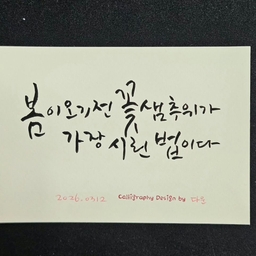 봄이오기전 꽃샘추위가
가장 시린 법이다
2026.0312 Calligraphy Design by 다온